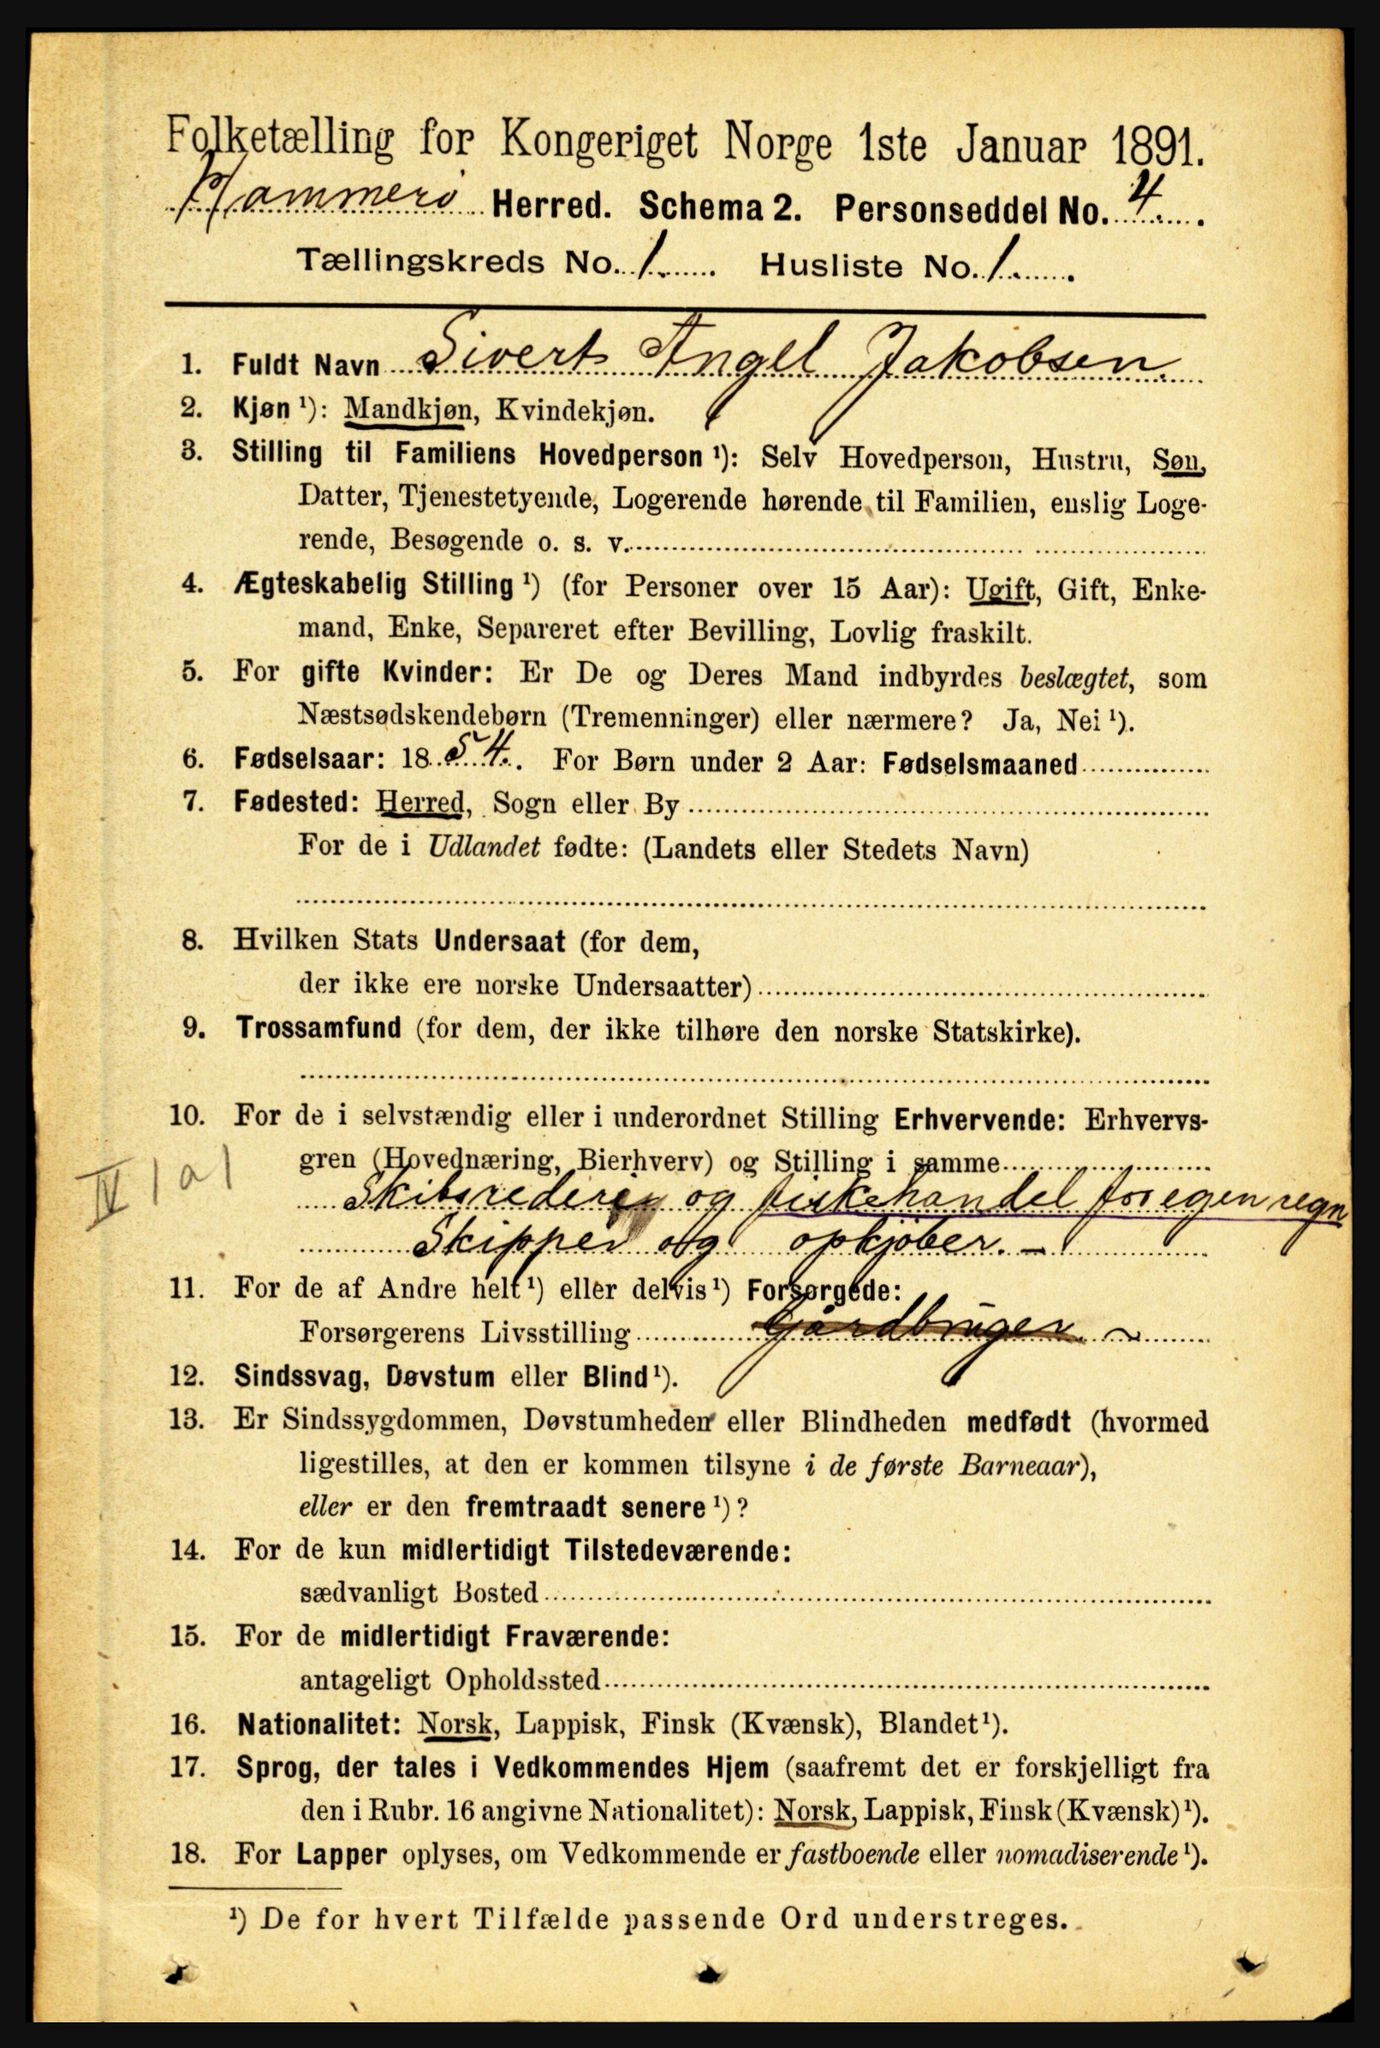 Folketælling for Kongeriget Norge 1ste Januar 1891.
Hammerø Herred. Schema 2. Personseddel No. 4.
Tællingskreds No. 1. Husliste No. 1.
1. Fuldt Navn Sivert Angel Jakobsen.
2. Kjøn ¹): Mandkjøn, Kvindekjøn.
3. Stilling til Familiens Hovedperson ¹): Selv Hovedperson, Hustru, Søn,
Datter, Tjenestetyende, Logerende hørende til Familien, enslig Loge-
rende, Besøgende o. s. v.
4. Ægteskabelig Stilling ¹) (for Personer over 15 Aar): Ugift, Gift, Enke-
mand, Enke, Separeret efter Bevilling, Lovlig fraskilt.
5. For gifte Kvinder: Er De og Deres Mand indbyrdes beslægtet, som
Næstsødskendebørn (Tremenninger) eller nærmere? Ja, Nei ¹).
6. Fødselsaar: 1854. For Børn under 2 Aar: Fødselsmaaned
7. Fødested: Herred, Sogn eller By
For de i Udlandet fødte: (Landets eller Stedets Navn)
8. Hvilken Stats Undersaat (for dem,
der ikke ere norske Undersaatter)
9. Trossamfund (for dem, der ikke tilhøre den norske Statskirke).
10. For de i selvstændig eller i underordnet Stilling Erhvervende: Erhvervs-
gren (Hovednæring, Bierhverv) og Stilling i samme
IV 1 a 1
Skibsrederi og fiskehandel for egen regn
Skipper og opkjøber. –
11. For de af Andre helt ¹) eller delvis ¹) Forsørgede:
Forsørgerens Livsstilling Gårdbruger ~
12. Sindssvag, Døvstum eller Blind ¹).
13. Er Sindssygdommen, Døvstumheden eller Blindheden medfødt (hvormed
ligestilles, at den er kommen tilsyne i de første Barneaar),
eller er den fremtraadt senere ¹)?
14. For de kun midlertidigt Tilstedeværende:
sædvanligt Bosted
15. For de midlertidigt Fraværende:
antageligt Opholdssted
16. Nationalitet: Norsk, Lappisk, Finsk (Kvænsk), Blandet ¹).
17. Sprog, der tales i Vedkommendes Hjem (saafremt det er forskjelligt fra
den i Rubr. 16 angivne Nationalitet): Norsk, Lappisk, Finsk (Kvænsk) ¹).
18. For Lapper oplyses, om Vedkommende er fastboende eller nomadiserende ¹).
¹) De for hvert Tilfælde passende Ord understreges.